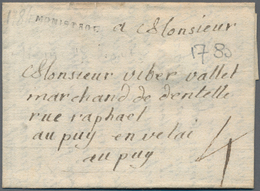 MONISTROL a Monsieur
1780
Monsieur viber vallet
marchand de dentelle
rue raphael
au puy en velai
au puy
4